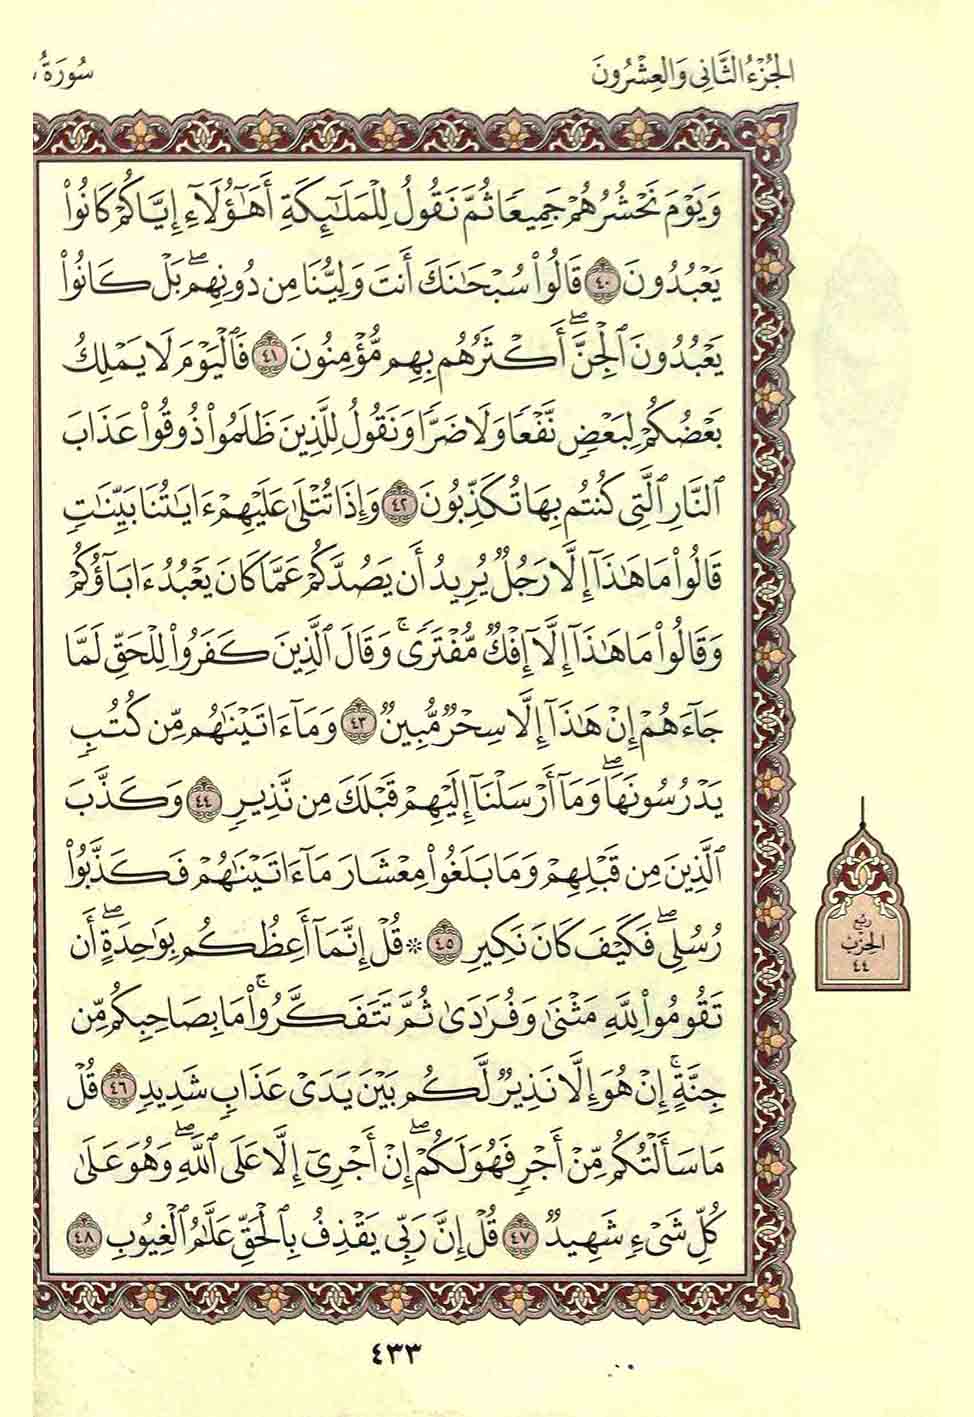 الجزء الثاني والعشرون
سورة
وَيَوْمَ نَحْشُرُهُمْ جَمِيعًا ثُمَّ نَقُولُ لِلْمَلَٰٓئِكَةِ أَهَٰٓؤُلَآءِ إِيَّاكُمْ كَانُوا۟
يَعْبُدُونَ ٤٠ قَالُوا۟ سُبْحَٰنَكَ أَنتَ وَلِيُّنَا مِن دُونِهِم ۖ بَلْ كَانُوا۟
يَعْبُدُونَ ٱلْجِنَّ ۖ أَكْثَرُهُم بِهِم مُّؤْمِنُونَ ٤١ فَٱلْيَوْمَ لَا يَمْلِكُ
بَعْضُكُمْ لِبَعْضٍ نَّفْعًا وَلَا ضَرًّا وَنَقُولُ لِلَّذِينَ ظَلَمُوا۟ ذُوقُوا۟ عَذَابَ
ٱلنَّارِ ٱلَّتِى كُنتُم بِهَا تُكَذِّبُونَ ٤٢ وَإِذَا تُتْلَىٰ عَلَيْهِمْ ءَايَٰتُنَا بَيِّنَٰتٍ
قَالُوا۟ مَا هَٰذَآ إِلَّا رَجُلٌ يُرِيدُ أَن يَصُدَّكُمْ عَمَّا كَانَ يَعْبُدُ ءَابَآؤُكُمْ
وَقَالُوا۟ مَا هَٰذَآ إِلَّآ إِفْكٌ مُّفْتَرًى ۚ وَقَالَ ٱلَّذِينَ كَفَرُوا۟ لِلْحَقِّ لَمَّا
جَآءَهُمْ إِنْ هَٰذَآ إِلَّا سِحْرٌ مُّبِينٌ ٤٣ وَمَآ ءَاتَيْنَٰهُم مِّن كُتُبٍ
يَدْرُسُونَهَا ۖ وَمَآ أَرْسَلْنَآ إِلَيْهِمْ قَبْلَكَ مِن نَّذِيرٍ ٤٤ وَكَذَّبَ
ٱلَّذِينَ مِن قَبْلِهِمْ وَمَا بَلَغُوا۟ مِعْشَارَ مَآ ءَاتَيْنَٰهُمْ فَكَذَّبُوا۟
رُسُلِى ۖ فَكَيْفَ كَانَ نَكِيرِ ٤٥ ۞ قُلْ إِنَّمَآ أَعِظُكُم بِوَٰحِدَةٍ ۖ أَن
تَقُومُوا۟ لِلَّهِ مَثْنَىٰ وَفُرَٰدَىٰ ثُمَّ تَتَفَكَّرُوا۟ ۚ مَا بِصَاحِبِكُم مِّن
جِنَّةٍ ۚ إِنْ هُوَ إِلَّا نَذِيرٌ لَّكُم بَيْنَ يَدَىْ عَذَابٍ شَدِيدٍ ٤٦ قُلْ
مَا سَأَلْتُكُم مِّنْ أَجْرٍ فَهُوَ لَكُمْ ۖ إِنْ أَجْرِىَ إِلَّا عَلَى ٱللَّهِ ۖ وَهُوَ عَلَىٰ
كُلِّ شَىْءٍ شَهِيدٌ ٤٧ قُلْ إِنَّ رَبِّى يَقْذِفُ بِٱلْحَقِّ عَلَّٰمُ ٱلْغُيُوبِ ٤٨
ربع
الحزب
٤٤
٤٣٣